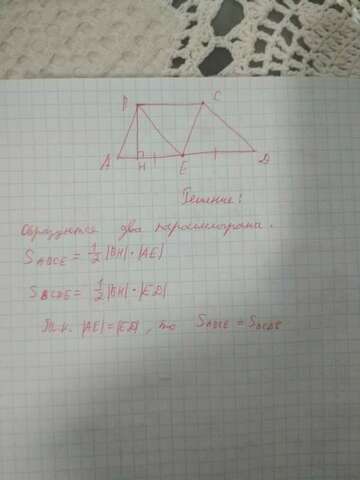 B C
A H E D
Решение!
Образуются два параллелограма.
S ABCE = 1/2 |BH| · |AE|
S BCDE = 1/2 |BH| · |ED|
Т.к. |AE| = |ED|, то S ABCE = S BCDE